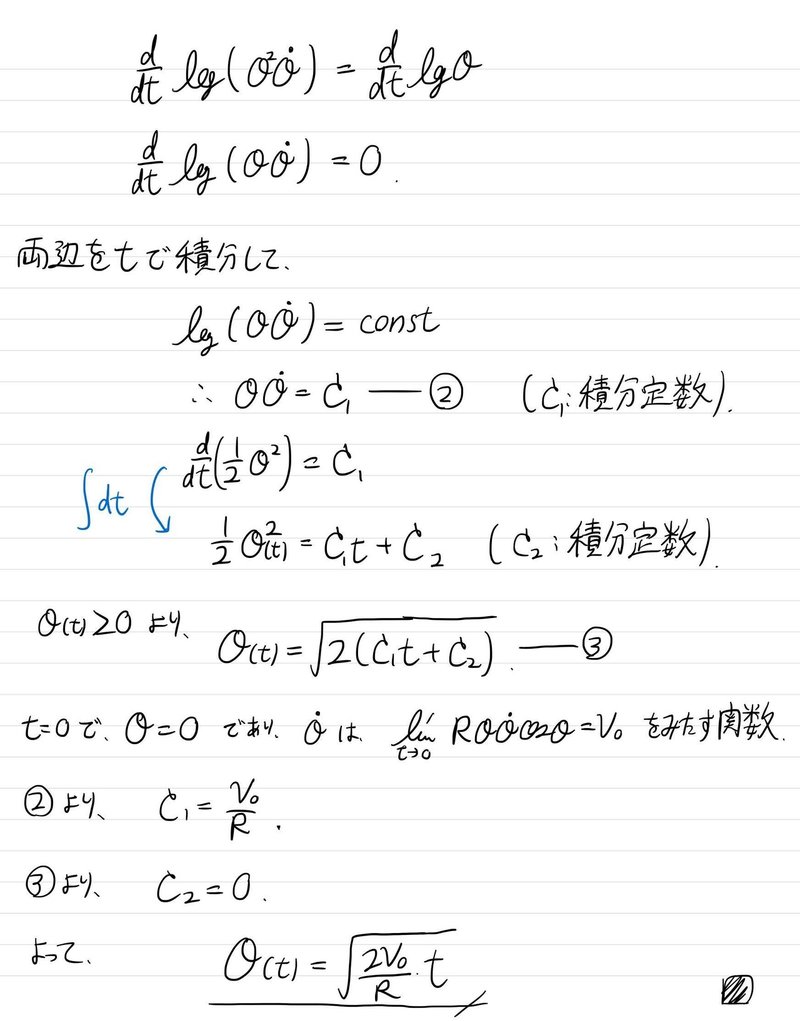 d/dt log(θ²θ̇) = d/dt logθ
d/dt log(θθ̇) = 0.
両辺をtで積分して、
log(θθ̇) = const
∴ θθ̇ = C₁ — ② (C₁:積分定数).
d/dt(1/2 θ²) = C₁
∫dt
1/2 θ²(t) = C₁t + C₂ (C₂:積分定数).
θ(t)≥0 より、 θ(t) = √{2(C₁t + C₂)}. — ③
t=0で、θ=0 であり、θ̇ は、 lim t→0 Rθθ̇cosθ = V₀ をみたす関数.
②より、 C₁ = V₀/R.
③より、 C₂ = 0.
よって、 θ(t) = √{2V₀/R · t}